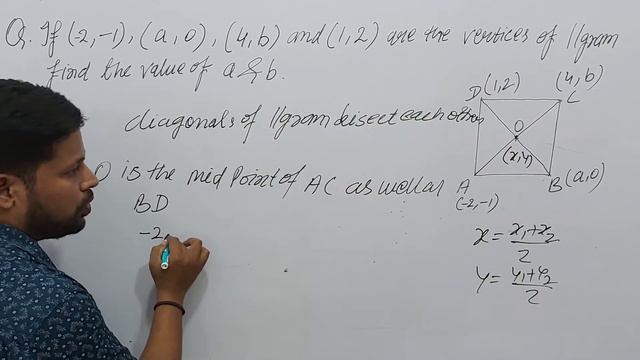 Q. If (-2,-1), (a,0), (4,b) and (1,2) are the vertices of //gram
find the value of a & b.
diagonals of //gram bisect each other
O is the mid Point of AC as well as
BD
-2
D(1,2)
(4,b)
C
O
(x,y)
A
(-2,-1)
B(a,0)
x = x₁+x₂/2
y = y₁+y₂/2